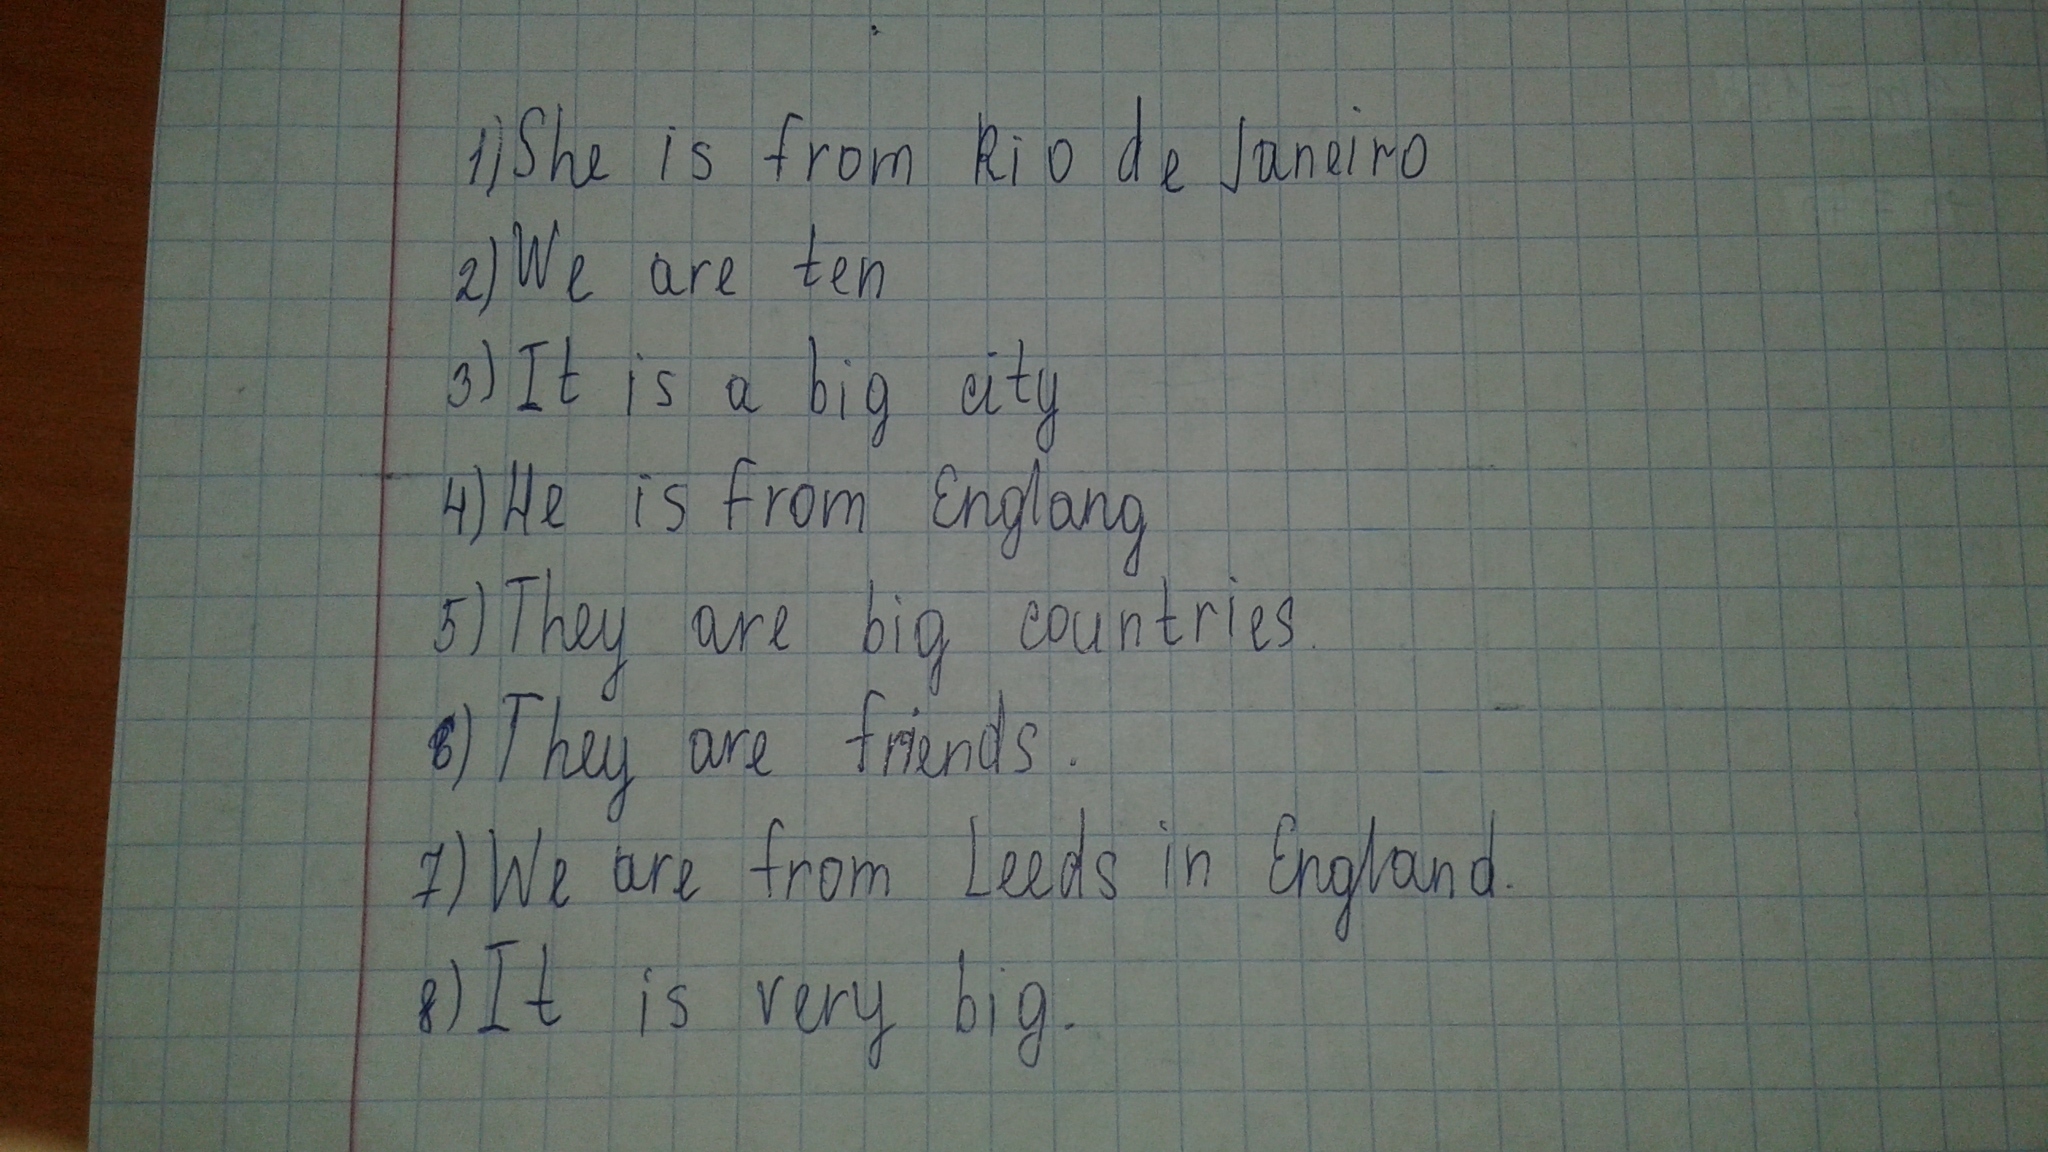 1) She is from Rio de Janeiro
2) We are ten
3) It is a big city
4) He is from Englang
5) They are big countries.
6) They are friends.
7) We are from Leeds in England.
8) It is very big.